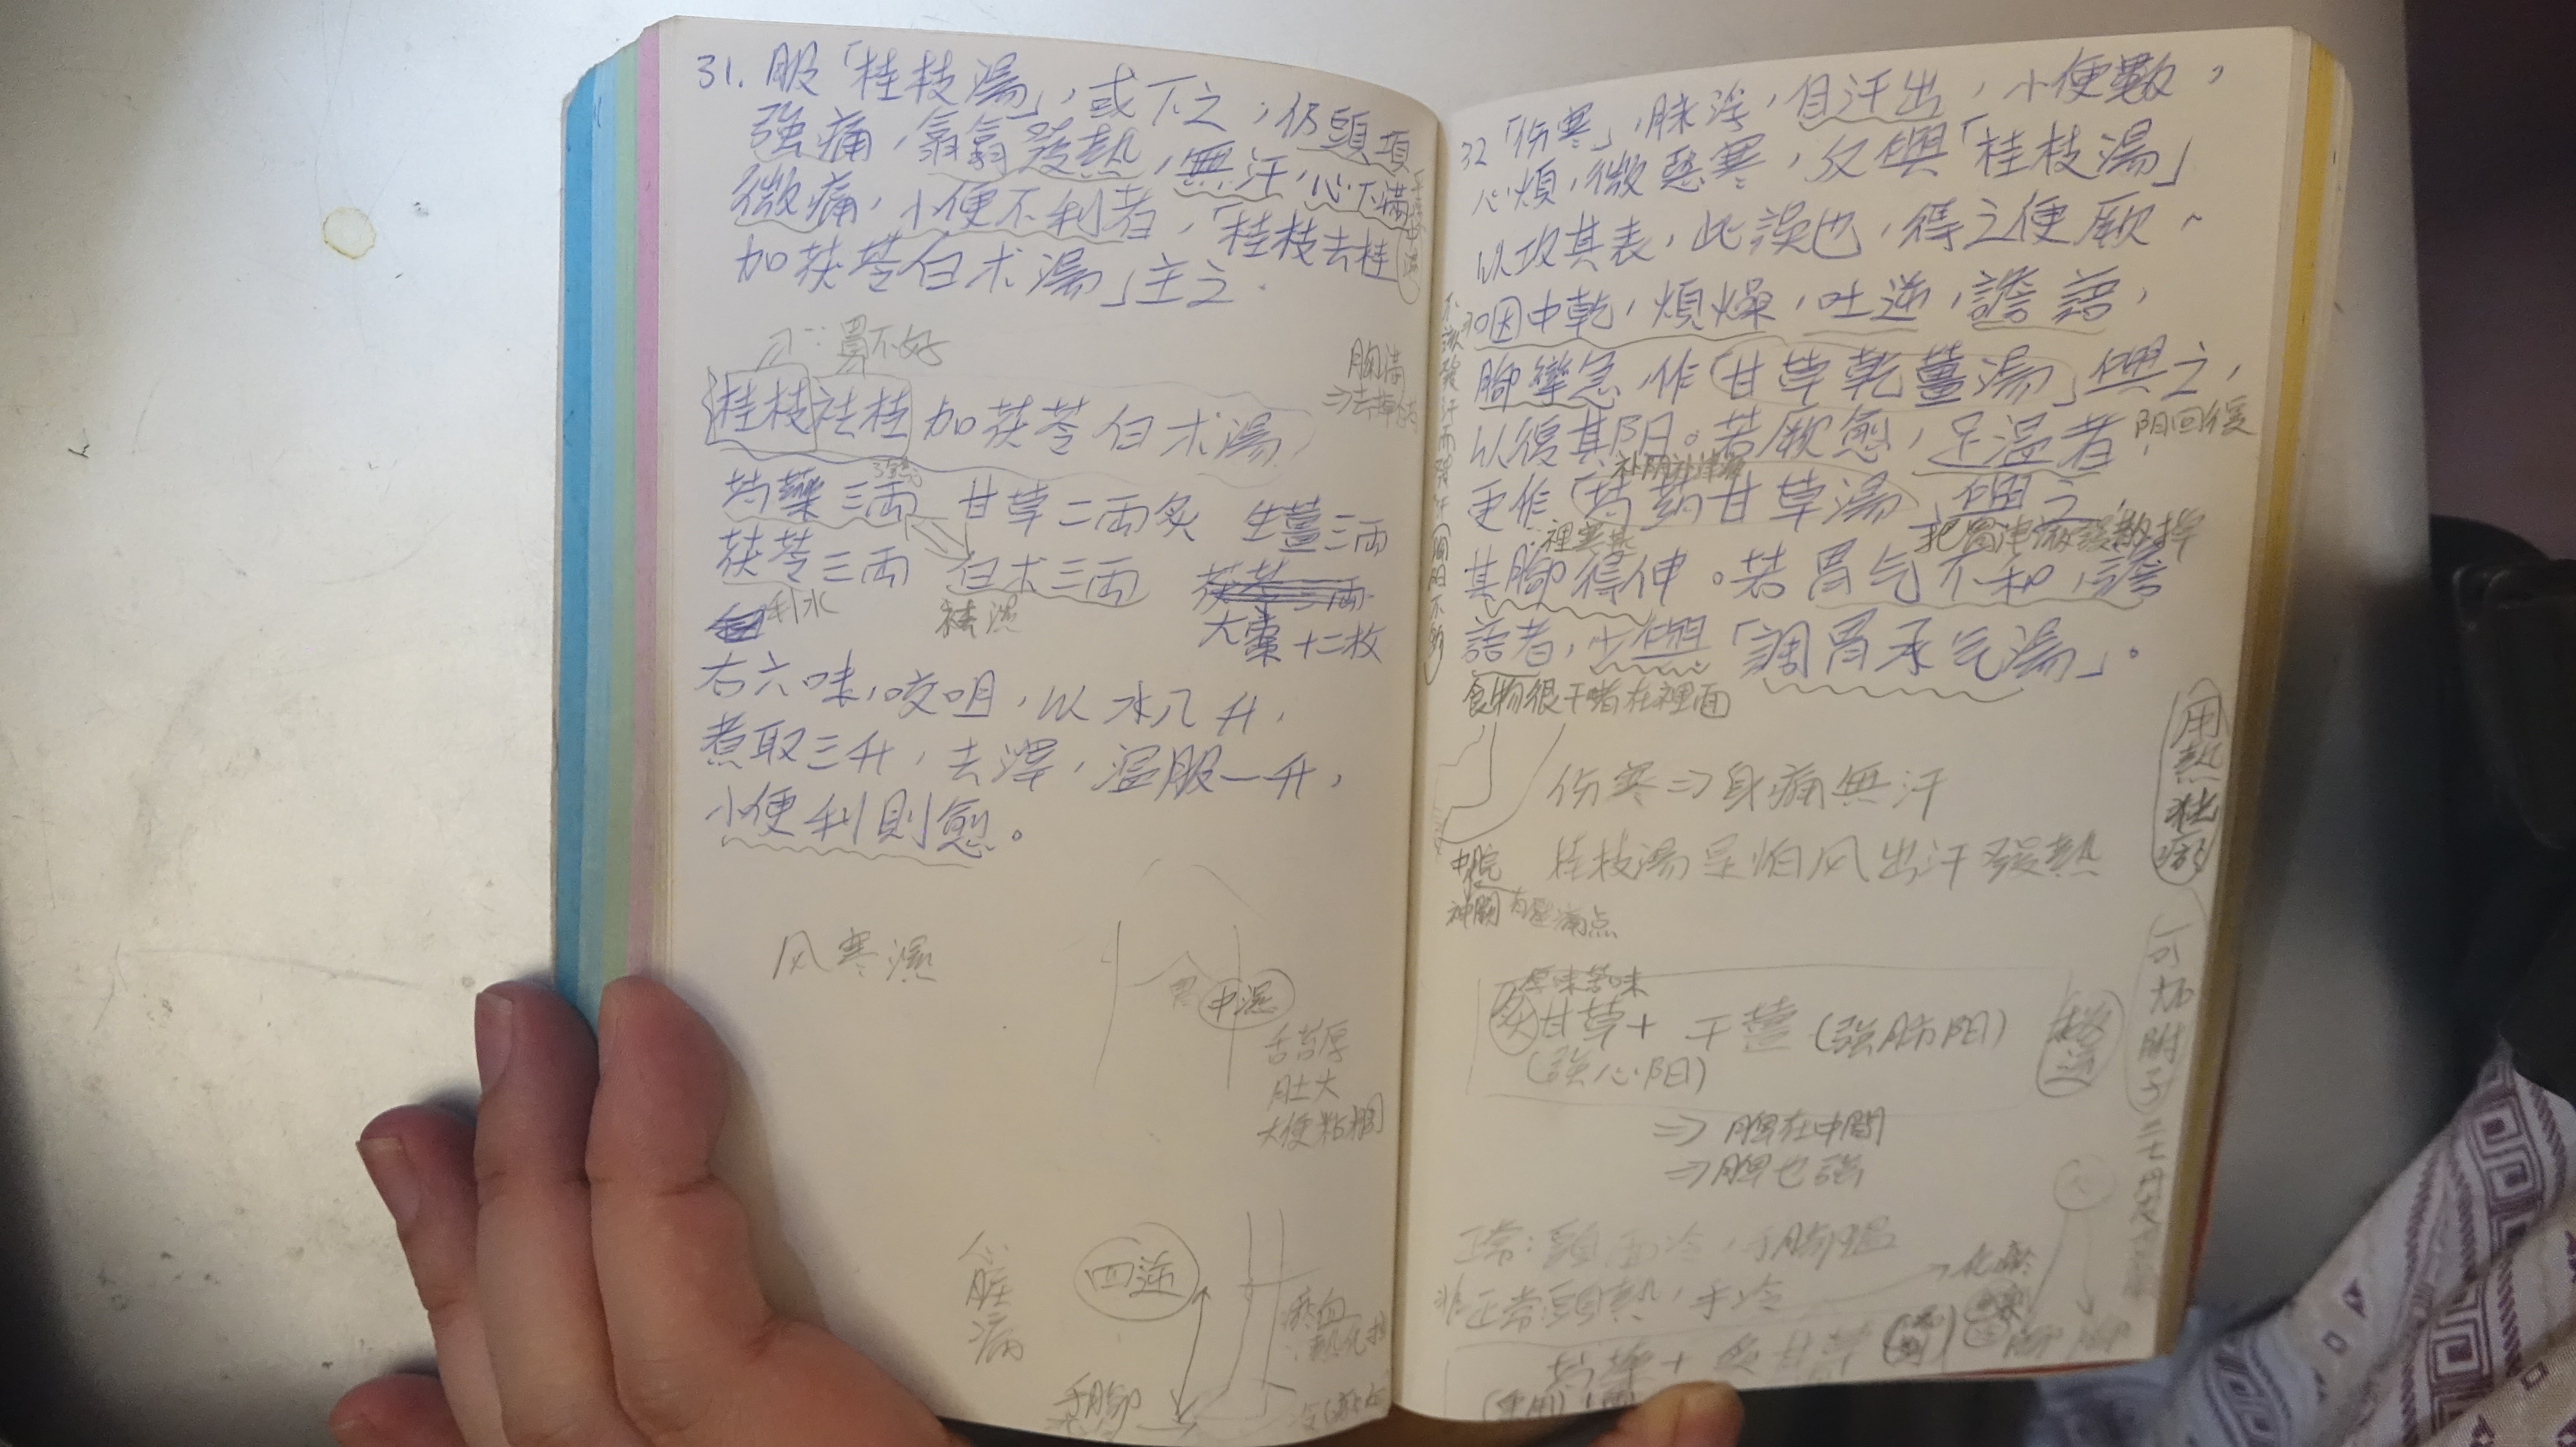 31. 服「桂枝湯」，或下之，仍頭項
強痛，翕翕發熱，無汗，心下滿
微痛，小便不利者，「桂枝去桂
加茯苓白朮湯」主之.
胃不好
胸滿
桂枝祛桂加茯苓白朮湯
芍藥三兩 甘草二兩炙 生薑三兩
茯苓三兩 白朮三兩
利水 祛濕 大棗十二枚
右六味，咬咀，以水八升，
煮取三升，去滓，溫服一升，
小便利則愈。
风寒濕
胃 中濕
舌苔厚
肚大
大便粘稠
心臟病
四逆
瘀血
手腳
32「伤寒」，脉浮，自汗出，小便數，
心煩，微惡寒，反與「桂枝湯」
以攻其表，此誤也，得之便厥、
咽中乾，煩燥，吐逆，譫語，
腳攣急，作「甘草乾薑湯」與之，
以復其阳。若厥愈，足溫者，
阳回復
更作「芍葯甘草湯」與之，
其腳得伸。若胃气不和，譫
語者，少與「調胃承气湯」。
食物很干堵在裡面
伤寒⇒身痛無汗
桂枝湯是怕风出汗發熱
中脘
神闕 有壓痛点
炙甘草+ 干薑 (強肺阳)
(強心阳)
⇒ 脾在中間
⇒ 脾也強
正常：頭面冷，手腳溫
非正常頭熱，手冷
芍藥+炙甘草